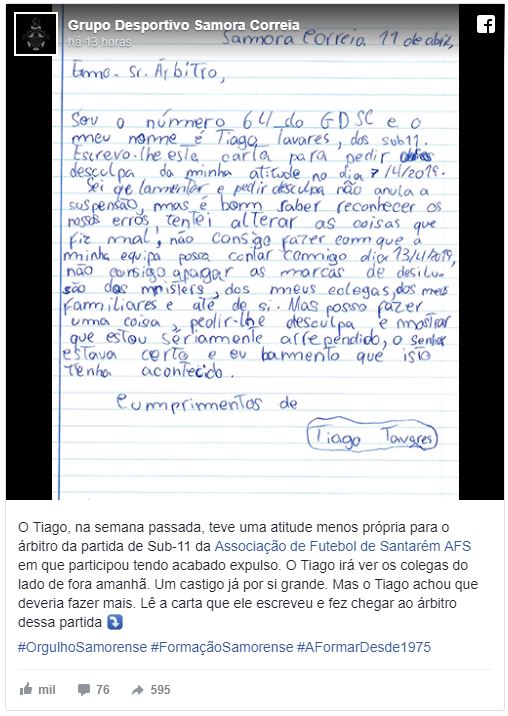 Grupo Desportivo Samora Correia
há 13 horas
Sammora Correia 11 de abril,
Exmo. Sr. Árbitro,
Sou o número 64 do GDSC e o
meu nome é Tiago Tavares, dos sub11.
Escrevo-lhe esta carta para pedir
desculpa da minha atitude no dia 7/4/2019.
Sei que lamentar e pedir desculpa não anula a
suspensão, mas é bom saber reconhecer os
nossos erros, tentei alterar as coisas que
fiz mal, não consigo fazer com que a
minha equipa possa contar comigo dia 13/4/2019,
não consigo apagar as marcas de desilu-
são dos misters, dos meus colegas, dos meus
familiares e até de si. Mas posso fazer
uma coisa, pedir-lhe desculpa e mostrar
que estou seriamente arrependido, o senhor
estava certo e eu lamento que isto
tenha acontecido.
Cumprimentos de
Tiago Tavares
O Tiago, na semana passada, teve uma atitude menos própria para o
árbitro da partida de Sub-11 da Associação de Futebol de Santarém AFS
em que participou tendo acabado expulso. O Tiago irá ver os colegas do
lado de fora amanhã. Um castigo já por si grande. Mas o Tiago achou que
deveria fazer mais. Lê a carta que ele escreveu e fez chegar ao árbitro
dessa partida
#OrgulhoSamorense #FormaçãoSamorense #AFormarDesde1975
mil 76 595